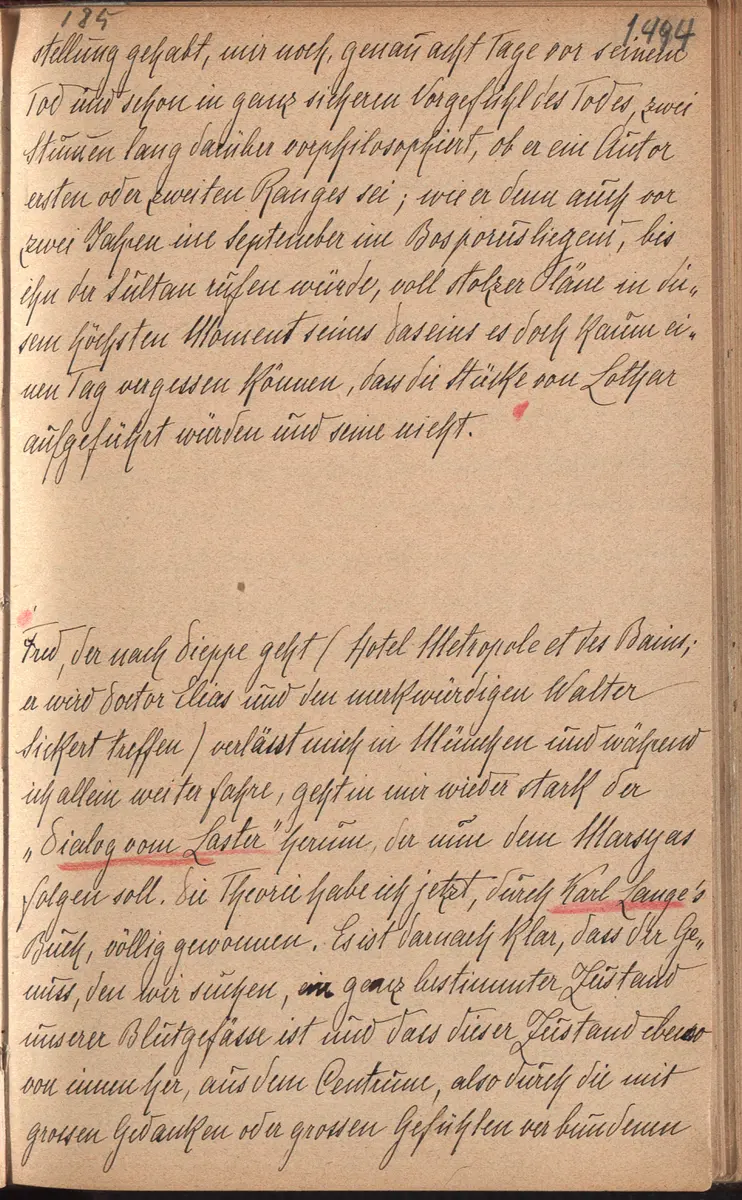 185
1494
stellung gehabt, mir noch, genau acht Tage vor seinem
Tod und schon in ganz sicheren Vorgefühl des Todes, zwei
Stunden lang darüber vorphilosophiert, ob er ein Autor
ersten oder zweiten Ranges sei; wie er denn auch vor
zwei Jahren im September im Bosporus liegend, bis
ihn der Sultan rufen würde, voll stolzer Pläne in die„
sem höchsten Moment seines Daseins es doch kaum ei„
nen Tag vergessen können, dass die Stücke von Lothar
aufgeführt würden und seine nicht.
Fred, der nach Dieppe geht (Hotel Metropole et des Bains;
er wird Doctor Elias und den merkwürdigen Walter
Sickert treffen) verlässt mich in München und während
ich allein weiter fahre, geht in mir wieder stark der
„Dialog vom Laster" herum, der nun dem Marsyas
folgen soll. Die Theorie habe ich jetzt, durch Karl Lange's
Buch, völlig gewonnen. Es ist darnach klar, dass der Ge„
nuss, den wir suchen, ein ganz bestimmter Zustand
unserer Blutgefässe ist und dass dieser Zustand ebenso
von innen her, aus dem Centrum, also durch die mit
grossen Gedanken oder grossen Gefühlen verbundenen